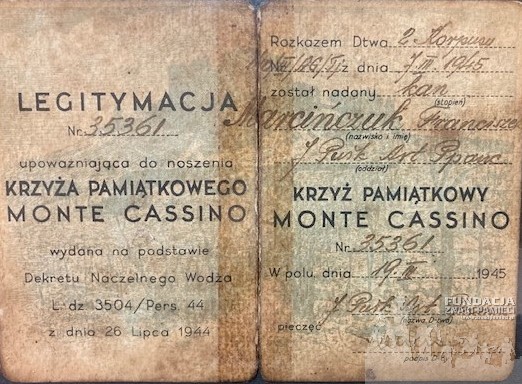 LEGITYMACJA
Nr. 35361
upoważniająca do noszenia
KRZYŻA PAMIĄTKOWEGO
MONTE CASSINO
wydana na podstawie
Dekretu Naczelnego Wodza
L. dz 3504/Pers. 44
z dnia 26 Lipca 1944
Rozkazem Dtwa 2 Korpusu
z dnia 7.III.1945
został nadany kan
(stopień)
Marcińczuk Franciszek
(nazwisko i imię)
7 Pułk Art. Ppanc
(oddział)
KRZYŻ PAMIĄTKOWY
MONTE CASSINO
Nr 35361
W polu, dnia 19.III 1945
7 Pułk Art
(nazwa D-twa)
pieczęć
podpis D-cy
FUNDACJA